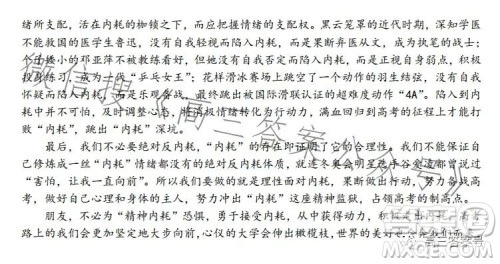 绪所支配，活在内耗的枷锁之下，而应把握情绪的支配权。黑云笼罩的近代时期，深知学医
不能救国的医学生鲁迅，没有自我轻视而陷入内耗，而是果断弃医从文，成为执笔的战士；
矮小的邓亚萍不被教练看好，但她没有自我否定而陷入内耗，而是正视自身弱点，积极
练习，成为一代“乒乓女王”；花样滑冰赛场上跳空了一个动作的羽生结弦，没有自我
怀疑而陷入内耗，而是乐观备战，最终跳出被国际滑联认证的超难度动作“4A”。陷入到内
耗中并不可怕，及时调整心态，将消极情绪转化为行动力，满血回归到高考的征程上才能打
败“内耗”，跳出“内耗”深坑。
最后，我们不必要绝对反内耗，“内耗”的存在即证明了它的合理性。我们不能保证自
己修炼成一丝“内耗”情绪都没有的绝对反内耗体质，就连冬奥会明星选手谷爱凌都曾说过
“害怕，让我一直向前”。所以我们要做的就是理性面对内耗，果断做出行动，努力备战高
考，做好自己心理和身体的主人，努力冲出“内耗”这座精神监狱，占领高考的制高点。
朋友，不必为“精神内耗”恐惧，勇于接受内耗，从中获得动力，积极走出内耗，
路上的我们会更加坚定地大步向前，心仪的大学会伸出橄榄枝，世界的美好
微信搜《高三答案公众号》